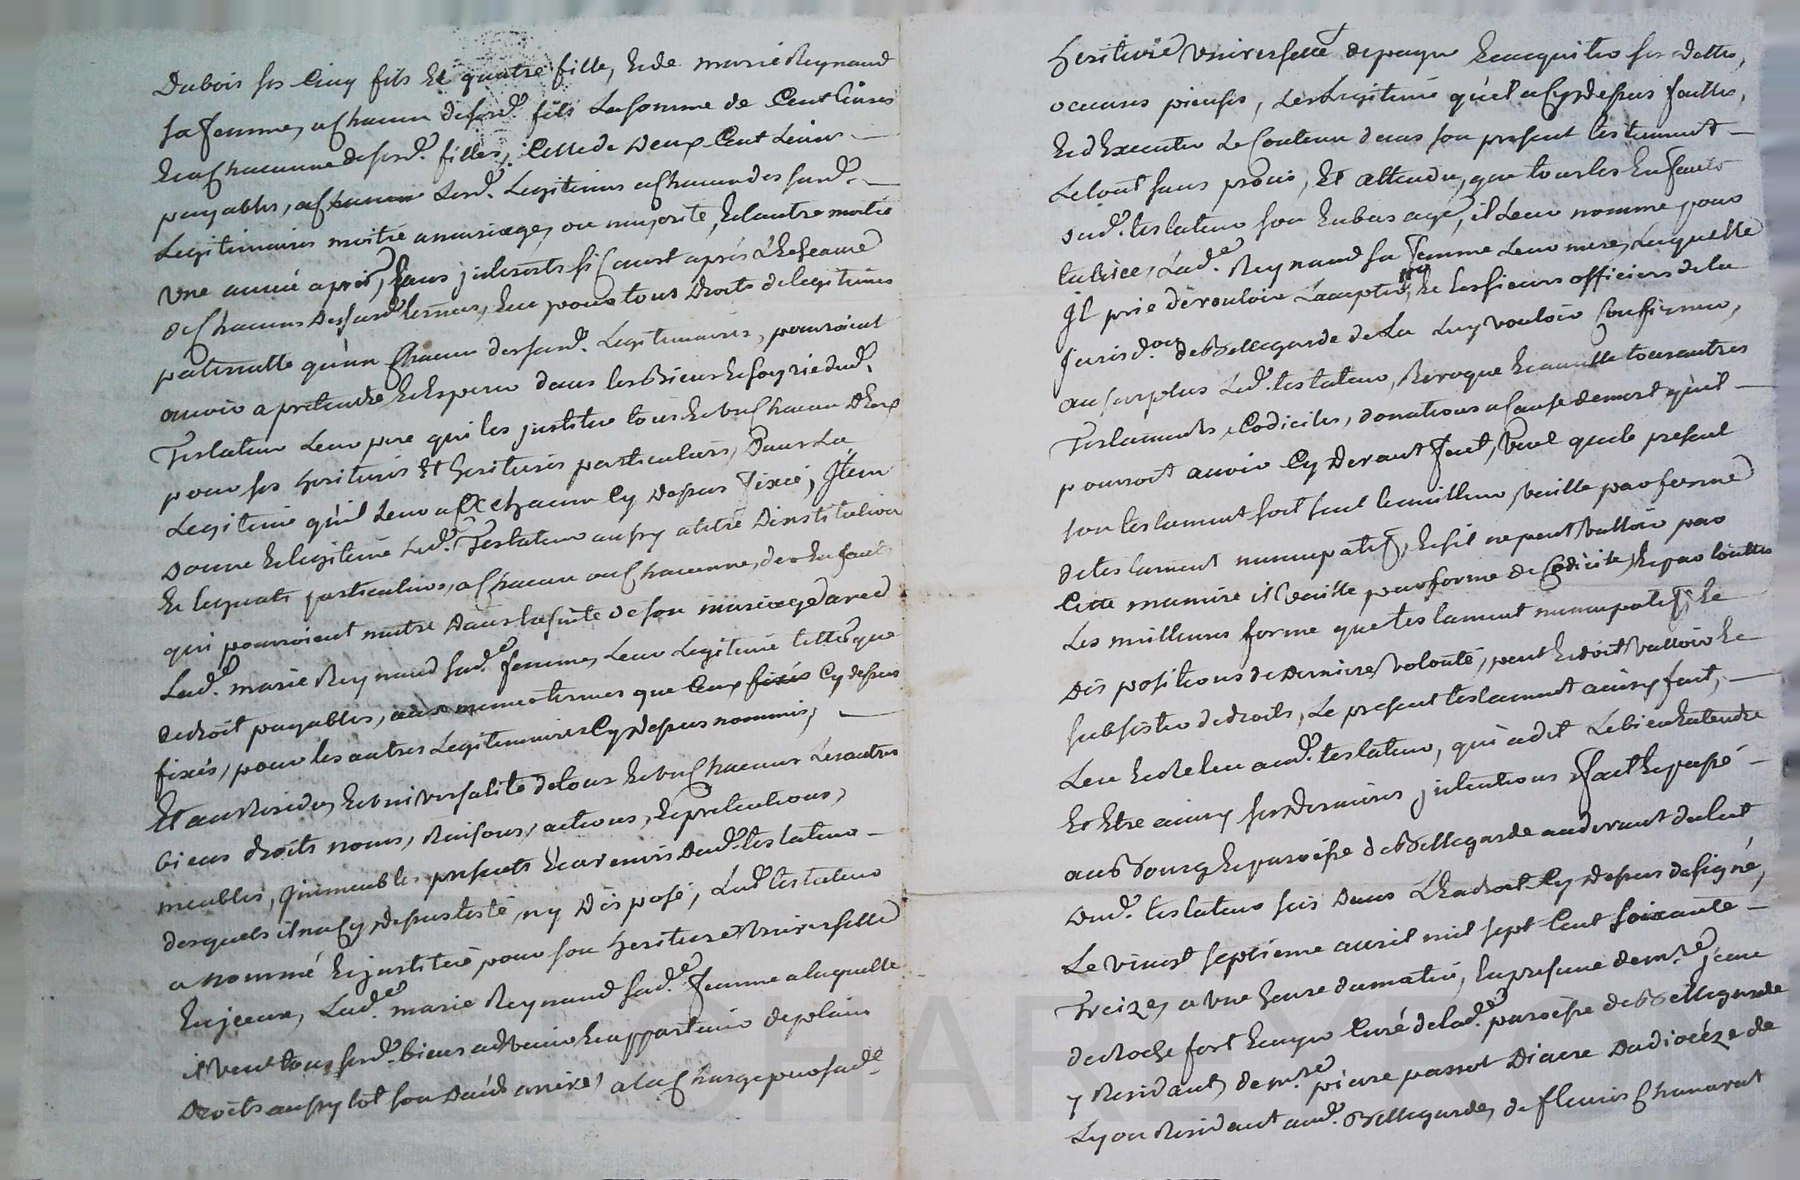 Dubois ses cinq fils et quatre fille, et de marie Reynaud
sa femme, a chacun desesd. fils La somme de Cent Livres
et a chacunne desesd. filles, Celle de Deux Cent Livres
payables, a chacun Lesd. Legitimes a chacun des susd.
Legitimaires moitié a mariage, ou majorité, et l'autre moitié
une année après, sans interests si Court après L'Echeance
de Chacuns Desusd. termes, et ce pour tous Droits de legitimes
paternelle qu'un Chacun des susd. Legitimaires, pourroient
avoir a pretendre et Esperer dans les Biens et hoyrie dud.
Testateur Leur pere qui les institue tous et un Chacun D'Eux
pour ses heritiers Et heritieres particuliers, Dans La
Legitime qu'il Leur a a chacun Cy Dessus fixée, Item
Donne et legitime Led. Testateur aussy a titre D'institution
et legats particuliers, a chacun ou Chacunne, des Enfants
qui pourroient naitre Dans la suite de son mariage avec
Lad. marie Reynaud sad. femme, Leur Legitime telle que
de droit payables, aux meme termes que Ceux fixés Cy dessus
fixés, pour les autres Legitimaires Cy dessus nommés,
Et au Residu, et universalité de tous et un Chacuns Les autres
biens droits noms, Raisons, actions, et pretentions,
meubles, immeubles presents et avenirs Dud. testateur
desquels il na Cy dessus testé, ny Disposé, Led. testateur
a nommé et institué pour son heritiere universelle
Lad. marie Reynaud sad. femme a laquelle
il veut tous sesd. biens advenir et appartenir de plain
Droits aussytot son Décés arrivé, a la Charge par sad.
heritiere universelle de payer et acquitter ses dettes,
oeuvres pieuses, Les Legitimes qu'il a Cy dessus faittes,
et d'Executer Le Contenu dans son present testament
Le tout sans procés, Et attendu, que tous les Enfants
dud. testateur son en bas age, il Leur nomme pour
tutrice, Lad. Reynaud sa femme Leur mere, Laquelle
Il prie de vouloir L'accepter, et les sieurs officiers de la
Jurisdon de Bellegarde de La Luy vouloir Confirmer,
au surplus Led. testateur, Revoque et annulle tous autres
Testaments, Codiciles, donations a Cause de mort qu'il
pourroit avoir Cy Devant fait, veut que le present
son testament soit seul le meilleur, vaille par forme
de testament nuncupatif, et s'il ne peut valloir par
Cette maniere il vaille par forme de Codicile, et par touttes
Les meilleures forme que testament nuncupatif et
Dispositions de Derniere volonté, peut et doit valloir et
subsister de droits, Le present testament ainsy fait,
Leu et Releu aud. testateur, qui a dit Le bien Entendre
et Etre ainsy ses Dernieres intentions fait et passé
au Bourg et paroisse de Bellegarde au devant du lit
dud. testateur sis Dans L'Endroit Cy Dessus designé,
Le vingt septieme avril mil sept Cent soixante
Treize, a une heure du matin, en presence de mre. jean
de Rochefort Ecuyer Curé de lad. paroisse de Bellegarde
y Residant, de mre. pierre passot Diacre Du diocéze de
Lyon Residant aud. Bellegarde, de fleuris Chanavat